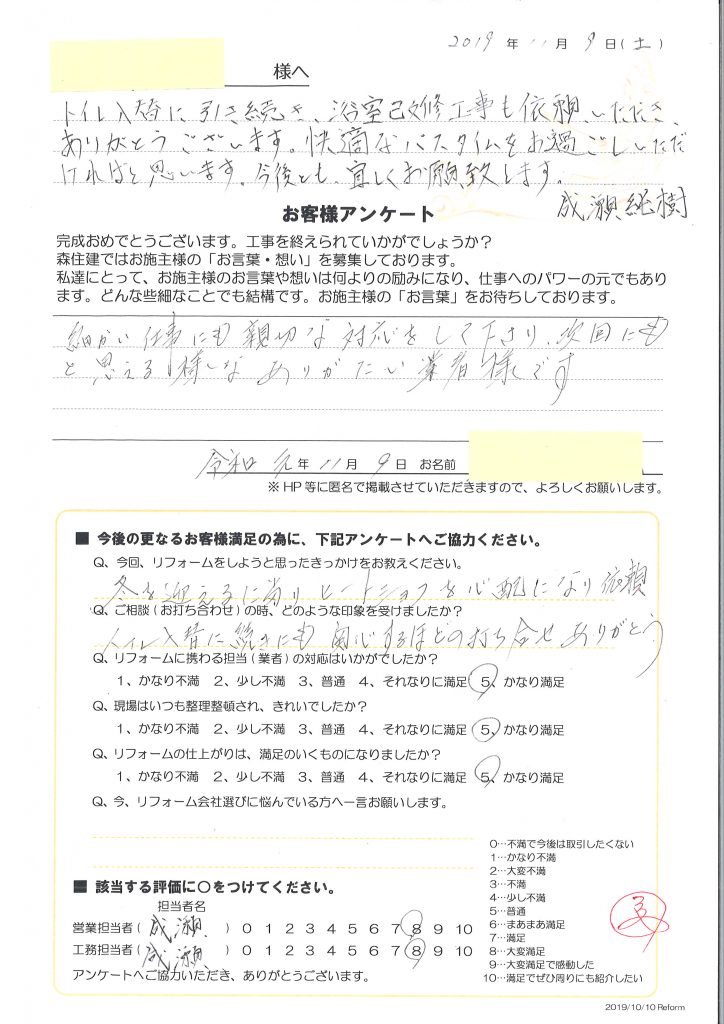 2019年11月9日(土)
様へ
トイレ入替に引き続き、浴室改修工事も依頼いただき、
ありがとうございます。快適なバスタイムをお過ごしいただ
ければと思います。今後とも、宜しくお願い致します。
成瀬純樹
お客様アンケート
完成おめでとうございます。工事を終えられていかがでしょうか？
森住建ではお施主様の「お言葉・想い」を募集しております。
私達にとって、お施主様のお言葉や想いは何よりの励みになり、仕事へのパワーの元でもあり
ます。どんな些細なことでも結構です。お施主様の「お言葉」をお待ちしております。
細かい仕事にも親切な対応をして下さり、次回にも
と思える様なありがたい業者様です
令和元年11月9日 お名前
※HP等に匿名で掲載させていただきますので、よろしくお願いします。
■ 今後の更なるお客様満足の為に、下記アンケートへご協力ください。
Q、今回、リフォームをしようと思ったきっかけをお教えください。
冬を迎えるに当りヒートショックを心配になり依頼
Q、ご相談(お打ち合わせ)の時、どのような印象を受けましたか？
トイレ入替に続きにも関心するほどの打ち合せありがとう
Q、リフォームに携わる担当(業者)の対応はいかがでしたか？
1、かなり不満 2、少し不満 3、普通 4、それなりに満足 5、かなり満足
Q、現場はいつも整理整頓され、きれいでしたか？
1、かなり不満 2、少し不満 3、普通 4、それなりに満足 5、かなり満足
Q、リフォームの仕上がりは、満足のいくものになりましたか？
1、かなり不満 2、少し不満 3、普通 4、それなりに満足 5、かなり満足
Q、今、リフォーム会社選びに悩んでいる方へ一言お願いします。
■ 該当する評価に○をつけてください。
担当者名
営業担当者(成瀬) 0 1 2 3 4 5 6 7 8 9 10
工務担当者(成瀬) 0 1 2 3 4 5 6 7 8 9 10
アンケートへご協力いただき、ありがとうございます。
0…不満で今後は取引したくない
1…かなり不満
2…大変不満
3…不満
4…少し不満
5…普通
6…まあまあ満足
7…満足
8…大変満足
9…大変満足で感動した
10…満足でぜひ周りにも紹介したい
2019/10/10 Reform